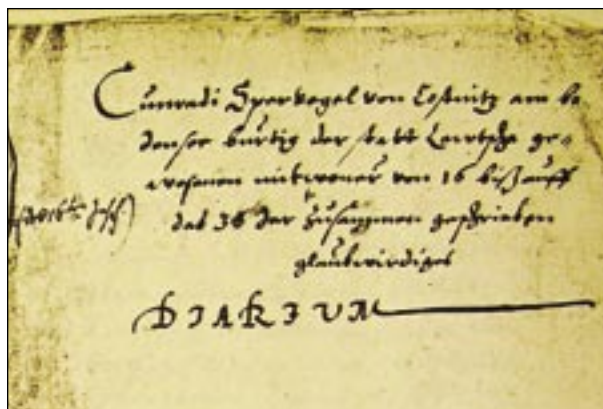 Cunradi Spervogel von Costnitz am bo
densee burtig der statt Leutsche ge-
wesenen mitwoner von 16 biß auff
das 36 Jar zusammen geschrieben
glaubwirdiges
DIARIUM